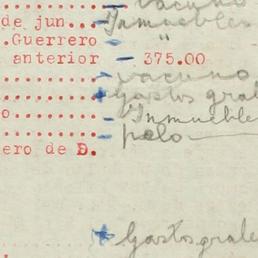 vacuno
de jun... Inmuebles
.Guerrero "
anterior - 375.00
.......... - vacuno
.......... Gastos gral
o......... - Inmueble
.......... - pelo
ero de D.
Gastos grale